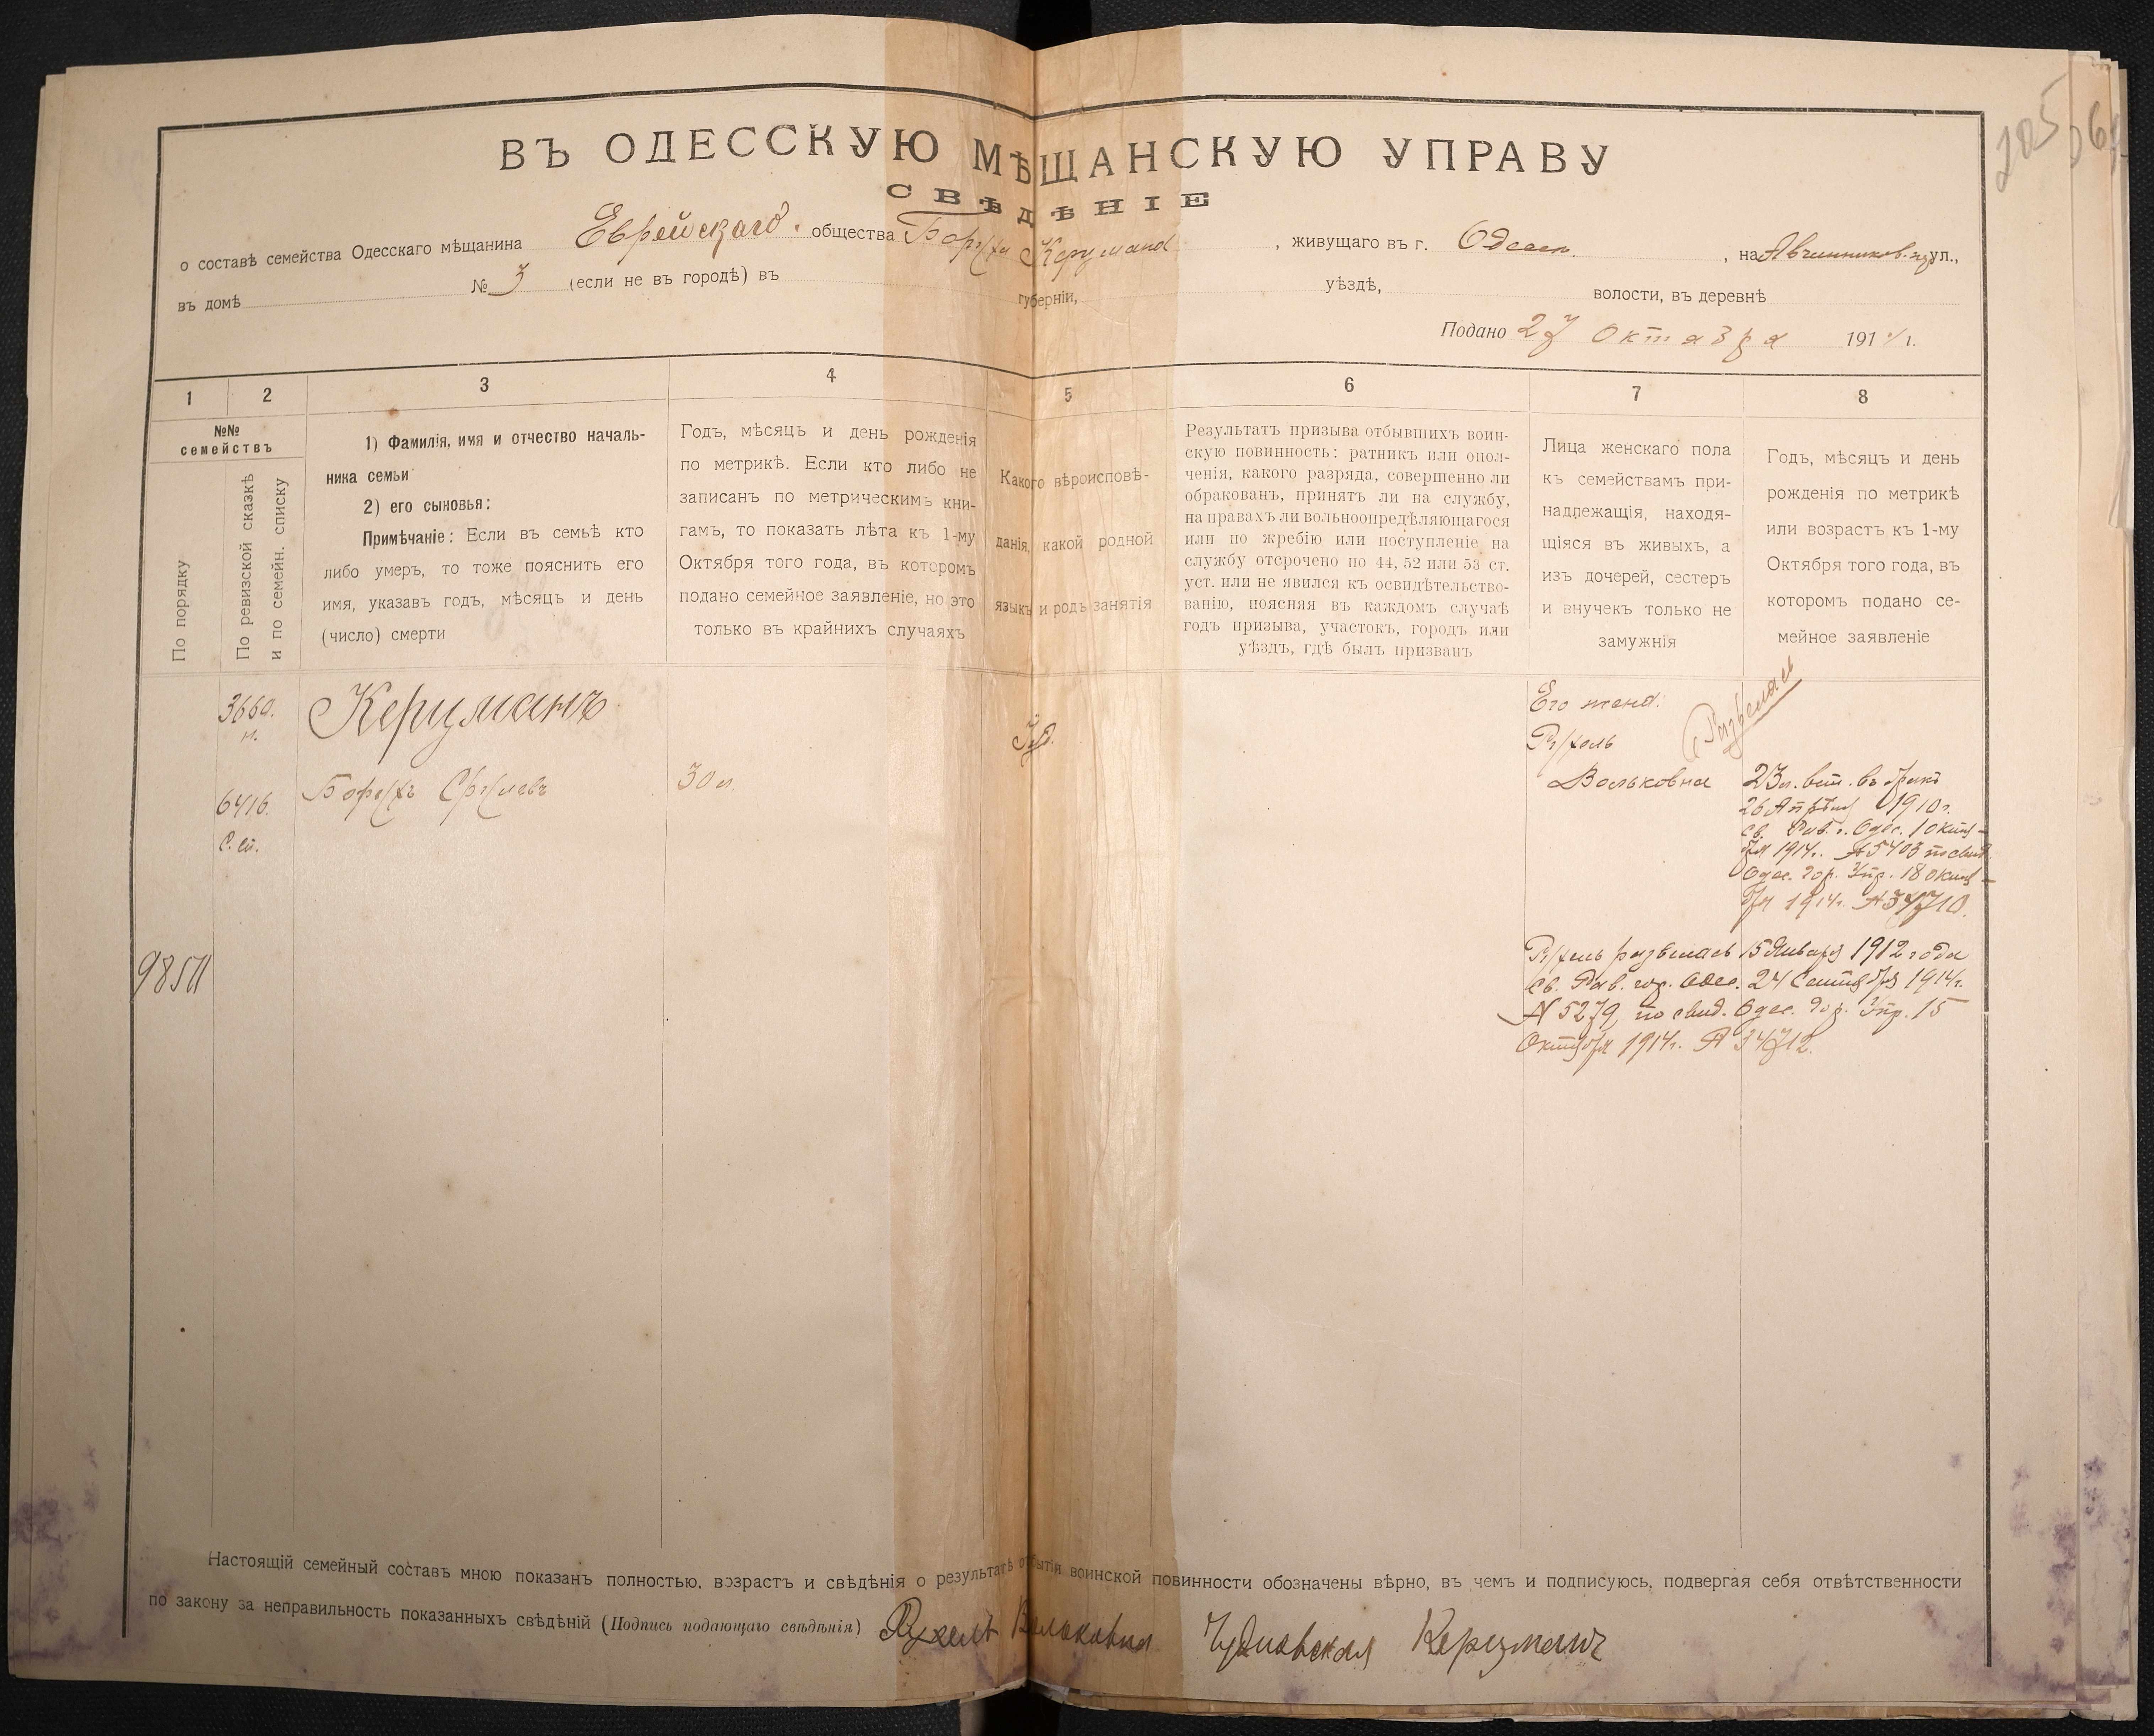 ВЪ ОДЕССКУЮ МѢЩАНСКУЮ УПРАВУ
СВѢДѢНІЕ
о составѣ семейства Одесскаго мѣщанина Еврейскаго общества Боруха Керцмана, живущаго въ г. Одессѣ, на ул.,
въ домѣ № 3 (если не въ городѣ) въ губерніи, уѣздѣ, волости, въ деревнѣ
Подано 27 октября 1914 г.
1 2 3 4 5 6 7 8
№№ семействъ
По порядку
По ревизской сказкѣ
и по семейн. списку
1) Фамилія, имя и отчество началь-
ника семьи
2) его сыновья:
Примѣчаніе: Если въ семьѣ кто
либо умеръ, то тоже пояснить его
имя, указавъ годъ, мѣсяцъ и день
(число) смерти
Годъ, мѣсяцъ и день рожденія
по метрикѣ. Если кто либо не
записанъ по метрическимъ кни-
гамъ, то показать лѣта къ 1-му
Октября того года, въ которомъ
подано семейное заявленіе, но это
только въ крайнихъ случаяхъ
Какого вѣроисповѣ-
данія, какой родной
языкъ и родъ занятія
Результатъ призыва отбывшихъ воин-
скую повинность: ратникъ или опол-
ченія, какого разряда, совершенно ли
обракованъ, принятъ ли на службу,
на правахъ ли вольноопредѣляющагося
или по жребію или поступленіе на
службу отсрочено по 44, 52 или 53 ст.
уст. или не явился къ освидѣтельство-
ванію, поясняя въ каждомъ случаѣ
годъ призыва, участокъ, городъ или
уѣздъ, гдѣ былъ призванъ
Лица женскаго пола
къ семействамъ при-
надлежащія, находя-
щіяся въ живыхъ, а
изъ дочерей, сестеръ
и внучекъ только не
замужнія
Годъ, мѣсяцъ и день
рожденія по метрикѣ
или возрастъ къ 1-му
Октября того года, въ
которомъ подано се-
мейное заявленіе
3660.
Керцманъ
6416.
Борухъ Срулевъ
30 л.
Іуд.
Его жена:
Рухель
Вольковна
Развелась
23 л. вст. въ бракъ
26 Апрѣля 1910 г.
св. Рав. г. Одес. 1 октя-
бря 1914 г. № 5403 по свид.
Одес. Гор. Упр. 18 октя-
бря 1914 г. № 34710.
9851
Рухель развелась 15 Января 1912 года
св. Рав. гор. Одес. 24 Сентября 1914 г.
№ 5279, по свид. Одес. Гор. Упр. 15
Октября 1914 г. № 34712.
Настоящій семейный составъ мною показанъ полностью, возрастъ и свѣдѣнія о результатѣ отбытія воинской повинности обозначены вѣрно, въ чемъ и подписуюсь, подвергая себя отвѣтственности
по закону за неправильность показанныхъ свѣдѣній (Подпись подающаго свѣдѣнія) Рухель Вольковна Чудновская Керцманъ